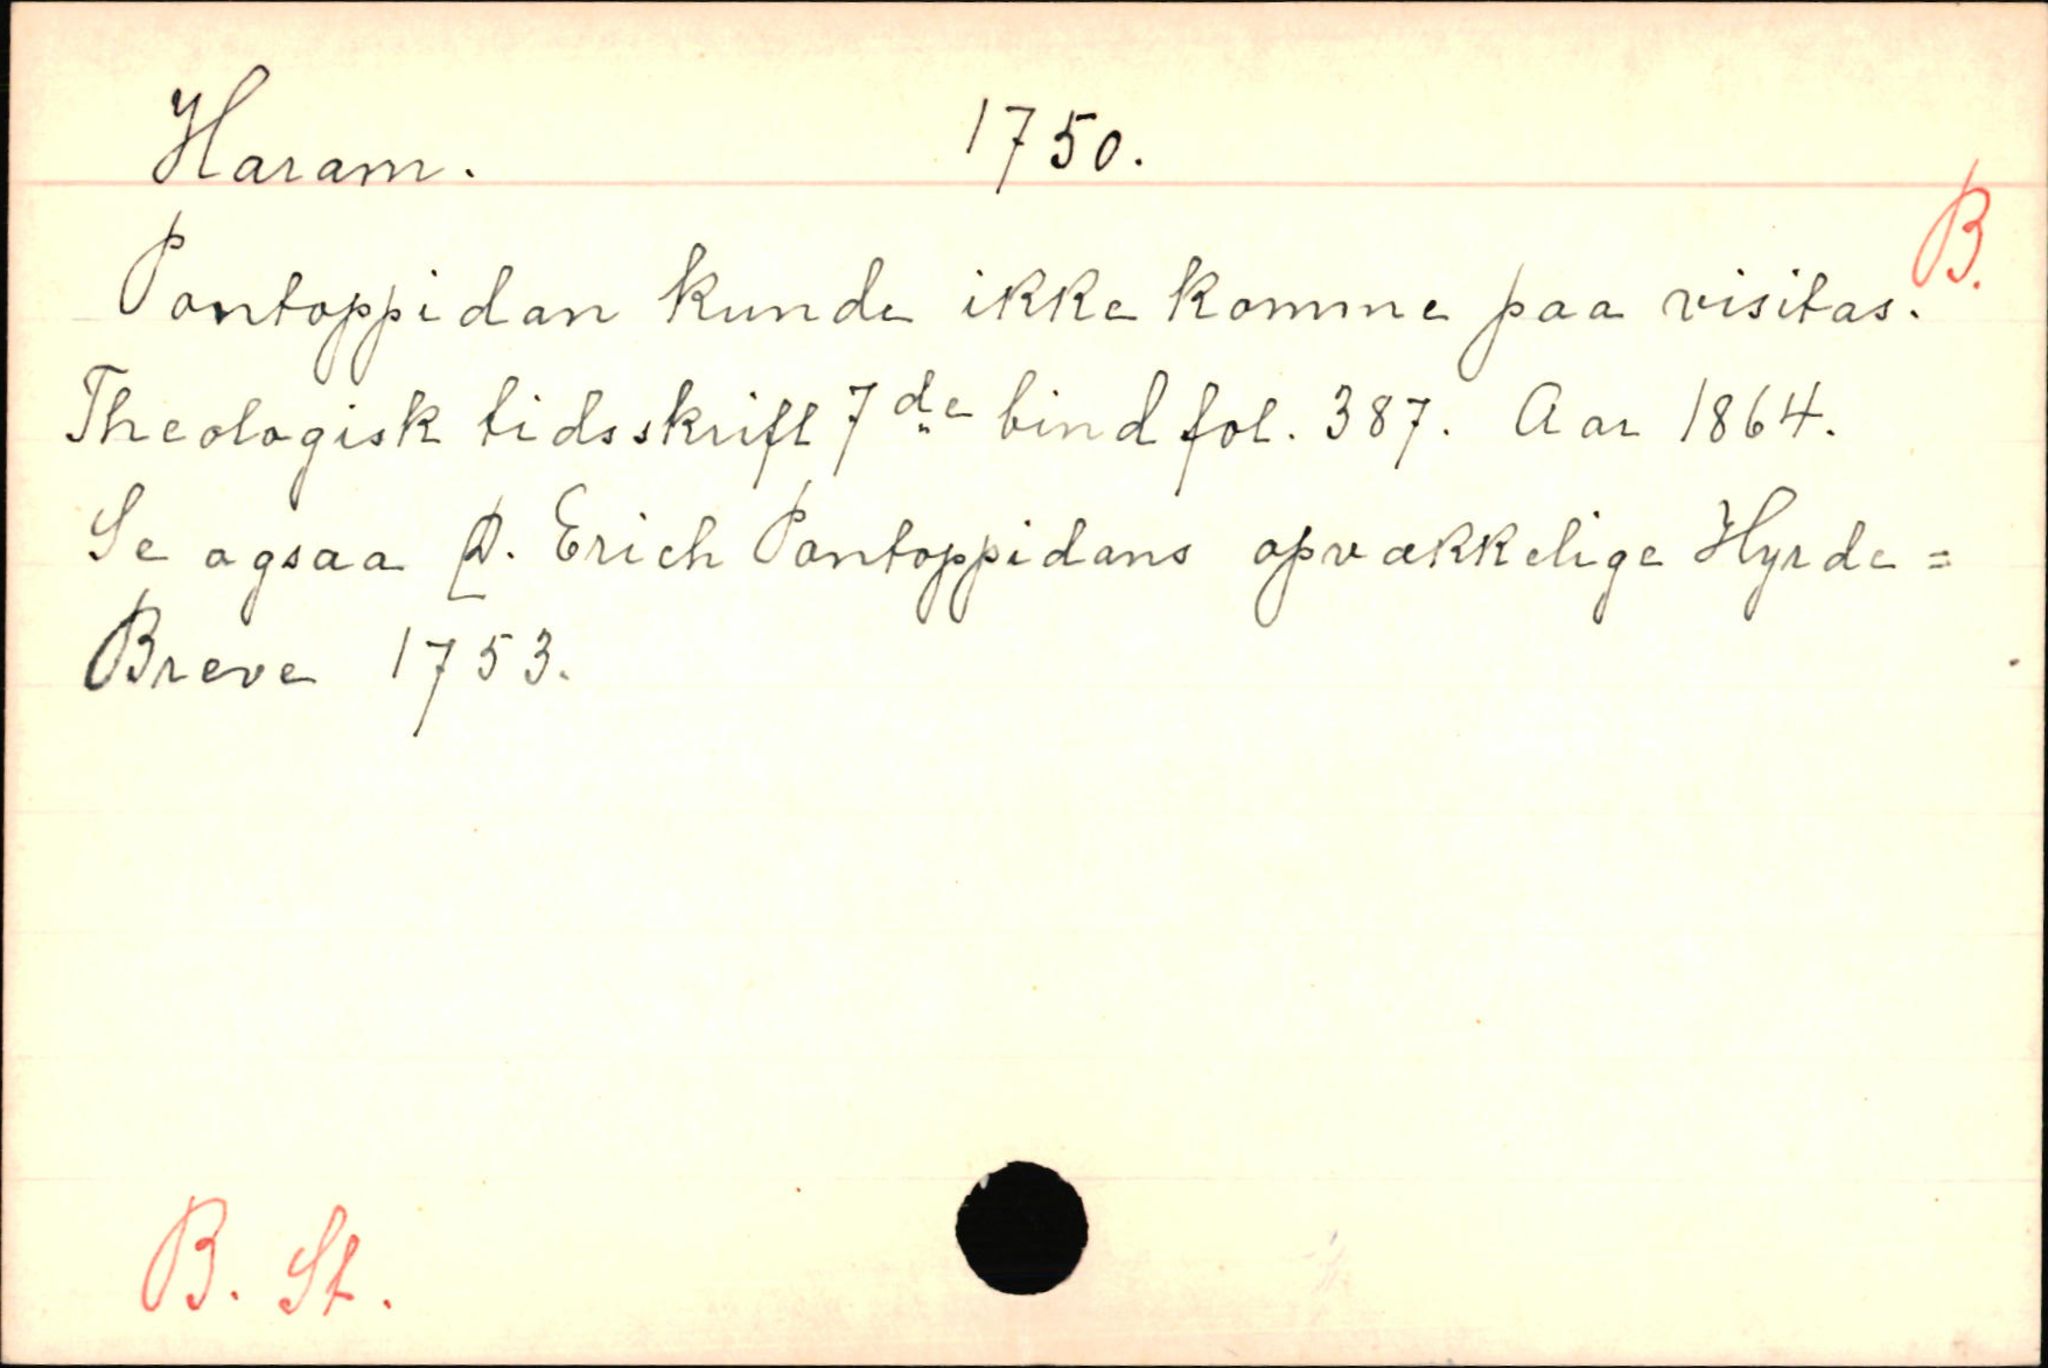 Haram. 1750.
B.
Pontoppidan kunde ikke komme paa visitas.
Theologisk tidsskrift 7de bind fol. 387. Aar 1864.
Se ogsaa D. Erich Pontoppidans opvækkelige Hyrde=
Breve 1753.
B. St.